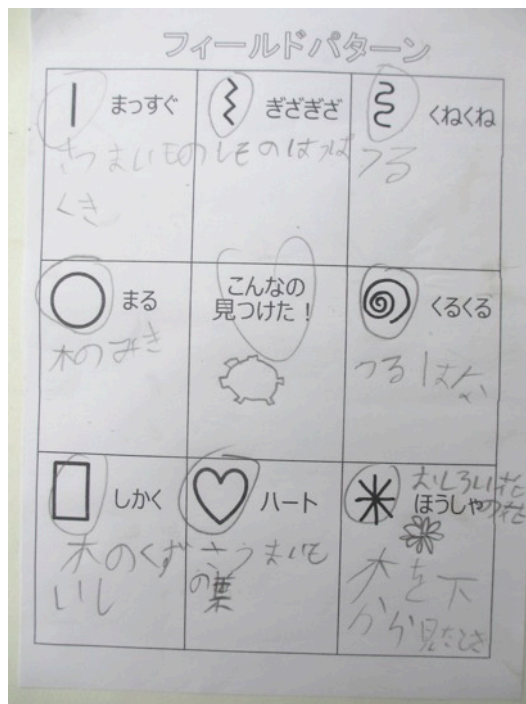 フィールドパターン
まっすぐ
さつまいもの
くき
ぎざぎざ
しそのはっぱ
くねくね
つる
まる
木のみき
こんなの
見つけた!
くるくる
つる はな
しかく
木のくず
いし
ハート
さつまいも
の葉
おしろい花
ほうしゃ
の花
木を下
から見たとき